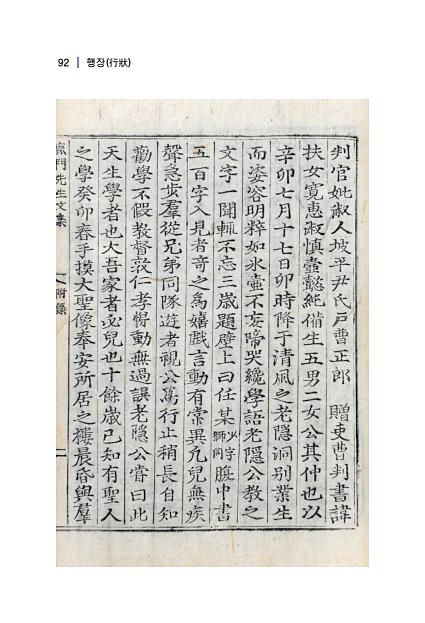 92 | 행장(行狀)
判官妣淑人坡平尹氏戶曹正郎 贈吏曹判書諱
扶女寬惠淑慎壼懿純備生五男二女公其仲也以
辛卯七月十七日卯時降于清風之老隱洞別業生
而姿容明粹如氷壺不妄啼哭纔學語老隱公教之
文字一聞輒不忘三歲題壁上曰任某少字獅同腹中書
五百字入見者奇之爲嬉戲言動有常異凡兒無疾
聲急步羣從兄弟同隊遊者視公爲行止稍長自知
勸學不假教督敦仁孝愕動無過誤老隱公嘗曰此
天生學者也大吾家者必兒也十餘歲已知有聖人
之學癸卯春手摸大聖像奉安所居之樓晨昏與羣
門先生文集
附錄
二